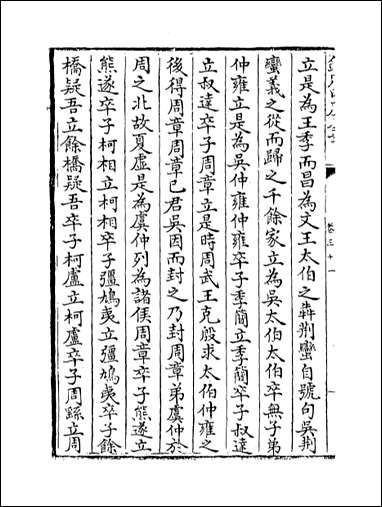 立是為王季而昌為文王太伯之犇荆蠻自號句吳荆
蠻義之從而歸之千餘家立為吳太伯太伯卒無子弟
仲雍立是為吳仲雍仲雍卒子季簡立季簡卒子叔達
立叔達卒子周章立是時周武王克殷求太伯仲雍之
後得周章周章已君吳因而封之乃封周章弟虞仲於
周之北故夏虛是為虞仲列為諸侯周章卒子熊遂立
熊遂卒子柯相立柯相卒子彊鳩夷立彊鳩夷卒子餘
橋疑吾立餘橋疑吾卒子柯盧立柯盧卒子周繇立周
卷三十一